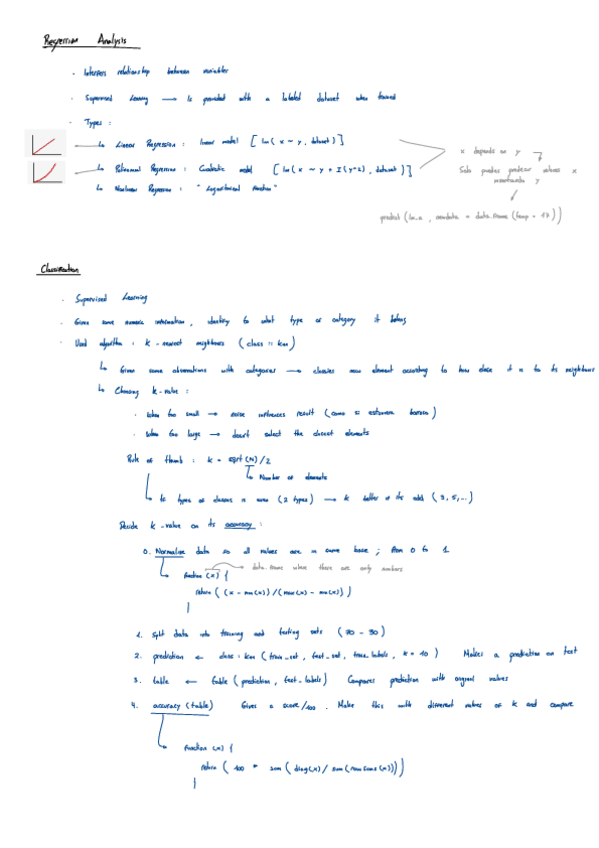 Regression Analysis
· Interpets relationship between variables
· Supervised Learning → Is provided with a labeled dataset when trained
· Types:
↳ Linear Regression: linear model [lm(x ~ y, dataset)]
↳ Polinomial Regression: Cuadratic model [lm(x ~ y + I(y^2), dataset)]
↳ Nonlinear Regression: "Logarithmical function"
x depends on y
Solo puedes predecir valores x
predict(lm.a, newdata = data.frame(temp = 17))
Classification
· Supervised Learning
· Given some numeric information, identify to what type or category it belongs
· Used algorithm: k-nearest neighbours (class::knn)
↳ Given some observations with categories → classifies new element according to how close it is to its neighbours
↳ Choosing k-value:
· When too small → noise influences result (como si estuviera borroso)
· When too large → doesn't select the closest elements
Rule of thumb: k = sqrt(N)/2
↳ Number of elements
↳ Is types of classes is even (2 types) → k better if its odd (3, 5,...)
Decide k-value on its accuracy:
0. Normalize data so all values are in same base; from 0 to 1
data.frame where there are only numbers
function(x) {
return ((x - min(x))/(max(x) - min(x)))
}
1. Split data into training and testing sets (70 - 30)
2. prediction ← class::knn(train_set, test_set, train_labels, k = 10) Makes a prediction on test
3. table ← table(prediction, test_labels) Compares prediction with original values
4. accuracy(table) Gives a score/100. Make this with different values of k and compare
function(x) {
return (100 * sum(diag(x)/sum(rowSums(x))))
}